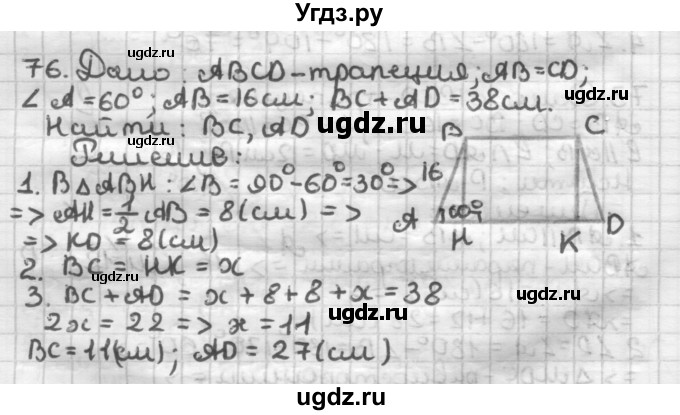 Угдз.ру
76. Дано: ABCD-трапеция; AB=CD;
∠A=60°; AB=16см; BC+AD=38см.
Найти: BC, AD
Решение:
B C
16
A 60° D
H K
1. В △ABH: ∠B=90°-60°=30°=>
=> AH=1/2 AB=8(см) =>
=> KD=8(см)
2. BC=HK=x
3. BC+AD=x+8+8+x=38
2x=22 => x=11
BC=11(см); AD=27(см)
ugdz.ru
ugdz.ru
ugdz.ru
ugdz.ru
ugdz.ru
ugdz.ru
ugdz.ru
ugdz.ru
ugdz.ru
ugdz.ru
ugdz.ru